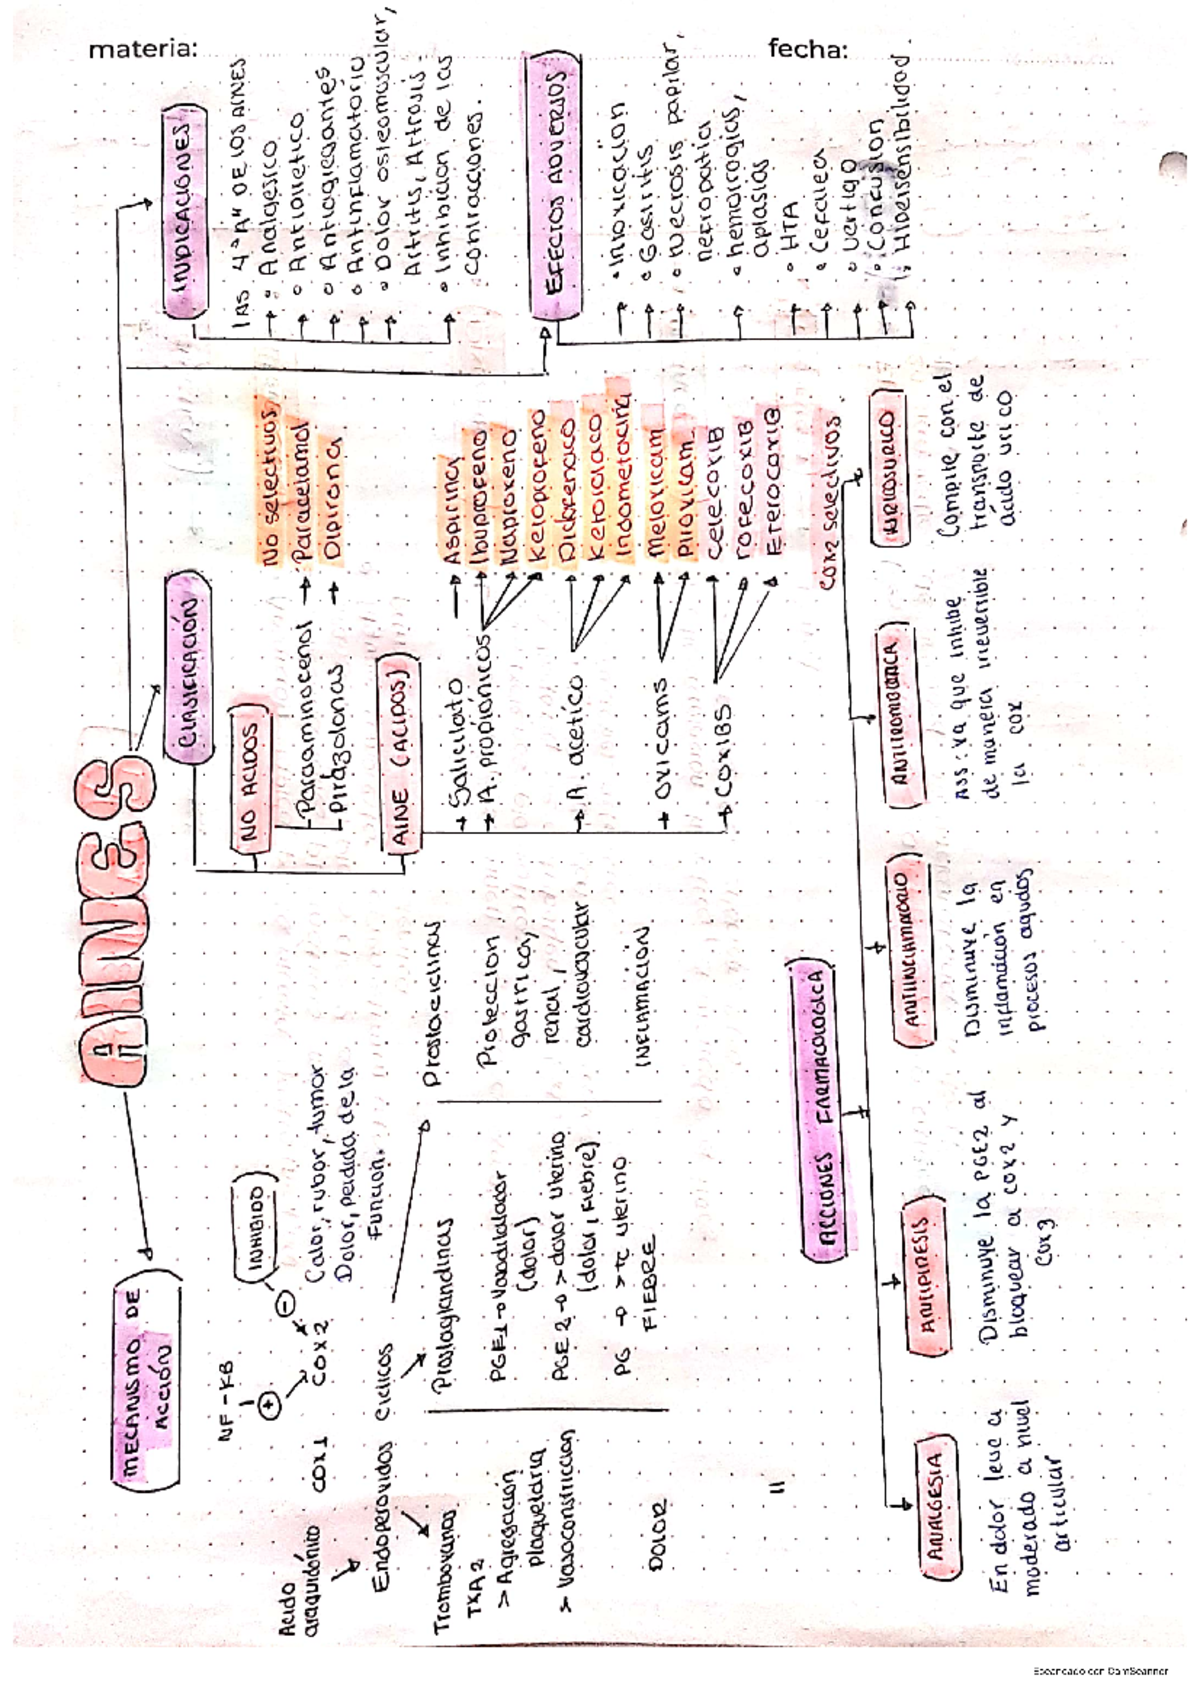 materia:
fecha:
AINES
MECANISMO DE
ACCIÓN
NF-KB
+
-
INHIBIDO
Acido
araquidónico
COX1
COX2
Calor, rubor, tumor
Dolor, perdida de la
Funcion.
Endoperoxidos ciclicos
Tromboxanos
TXA2
> Agregación
plaquetaria
> Vasoconstriccion
DOLOR
Prostaglandinas
PGE1 → Vasodilatador
(dolor)
PGE2 → > dolor uterino
(dolor, Fiebre)
PG → > tc uterino
FIEBRE
Prostaciclinas
Proteccion
gastrica,
renal,
cardiovascular
INFLAMACIÓN
=
CLASIFICACIÓN
NO ACIDOS
Paraaminofenol →
pirazolonas →
No selectivos
Paracetamol
Dipirona
AINE (ACIDOS)
→ Salicilato → Aspirina
→ A. propiónicos
Ibuprofeno
Naproxeno
Ketoprofeno
→ A. acetico
Diclofenaco
Ketorolaco
Indometacina
→ Oxicams
Meloxicam
Piroxicam
→ COXIBS
Celecoxib
rofecoxib
Eterocoxib
COX2 Selectivos
INDICACIONES
las 4 "A" DE LOS AINES
→ • Analgesico
→ • Antipiretico
→ • Antiagregantes
→ • Antiinflamatorio
→ • Dolor osteomuscular,
Artritis, Artrosis.
→ • Inhibicion de las
contracciones.
EFECTOS ADVERSOS
→ • Intoxicación
→ • Gastritis
→ • Necrosis papilar,
nefropatia
→ • hemorragias,
aplasias
→ • HTA
→ • Cefalea
→ • Vertigo
→ • Confusion
→ • Hipersensibilidad
ACCIONES FARMACOLOGICA
ANALGESIA
En dolor leve a
moderado a nivel
articular
ANTIPIRESIS
Disminuye la PGE2 al
bloquear a cox2 y
Cox3
ANTIINFLAMATORIO
Disminuye la
inflamación en
procesos agudos
ANTITROMBOTICA
ASS: ya que inhibe
de manera irreversible
la cox
URICOSURICO
Compite con el
transporte de
ácido urico
Escaneado con CamScanner